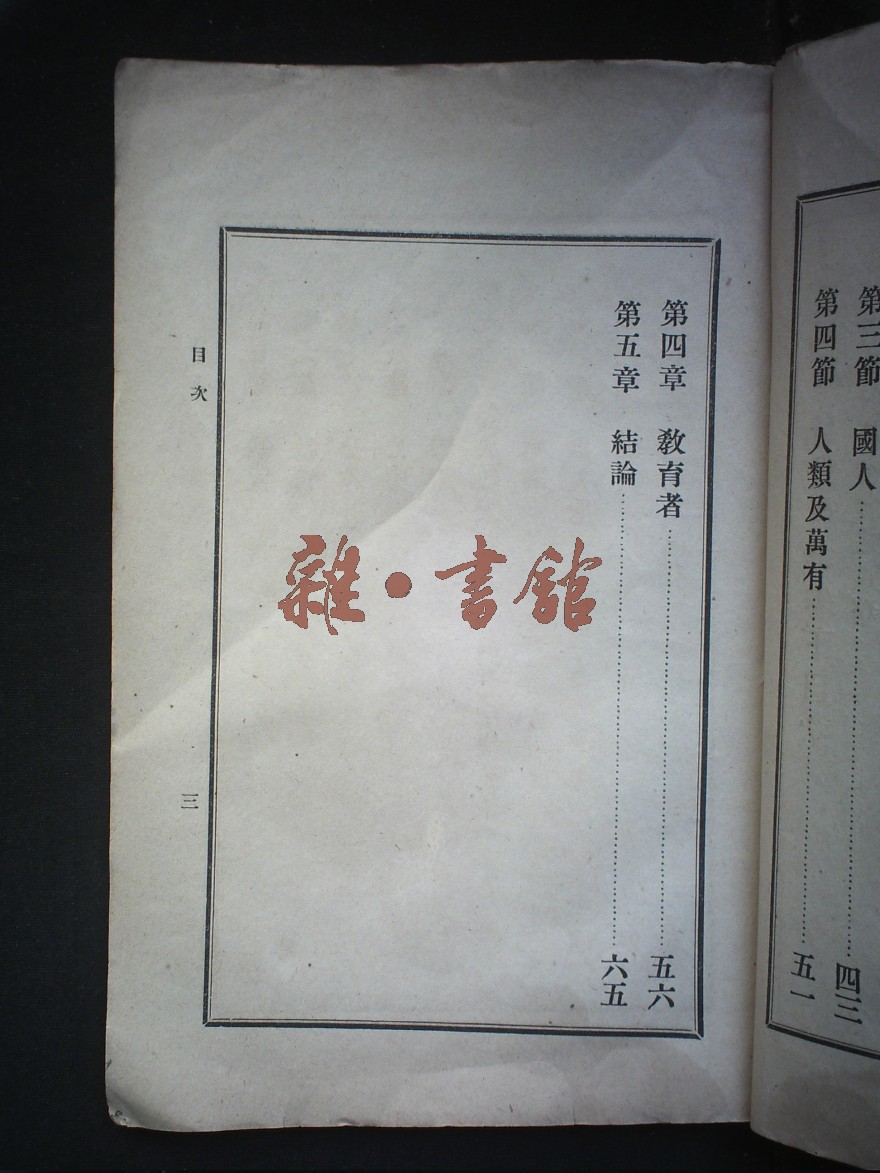 第三節　國人…………四三
第四節　人類及萬有…………五一
第四章　教育者…………五六
第五章　結論…………六五
目次
三
雜·書館